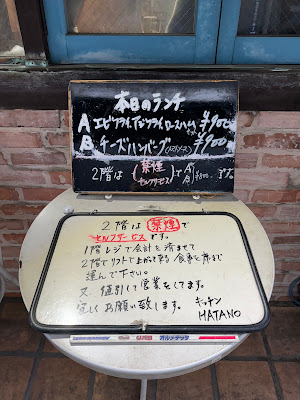 本日のランチ
A エビフライ,イカフライ,ロースハム ¥900
B チーズハンバーグ ¥900
2階は(禁煙 セルフサービス)で A B ¥800 です
2階は禁煙で
セルフサービスです。
1階レジで会計を済ませて
2階でリフトで上がって来る食事を席まで
運んで下さい。
又値引して営業をしてます。
宜しくお願い致します。
キッチン
HATANO